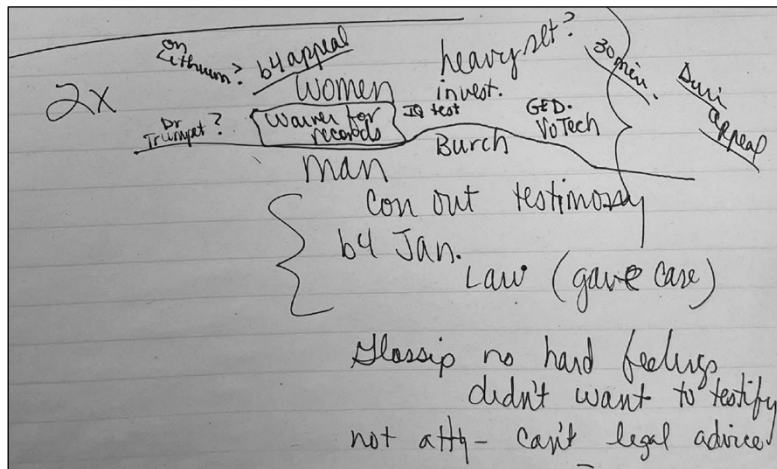 on Lithium? b4 appeal heavy set? 30 min.
2x women invest. Duri appeal
Dr Trumpet? Waiver for records IQ test GED. VoTech
man Burch
con out testimony
b4 Jan.
Law (gave case)
Glossip no hard feelings
didn't want to testify
not atty - can't legal advice